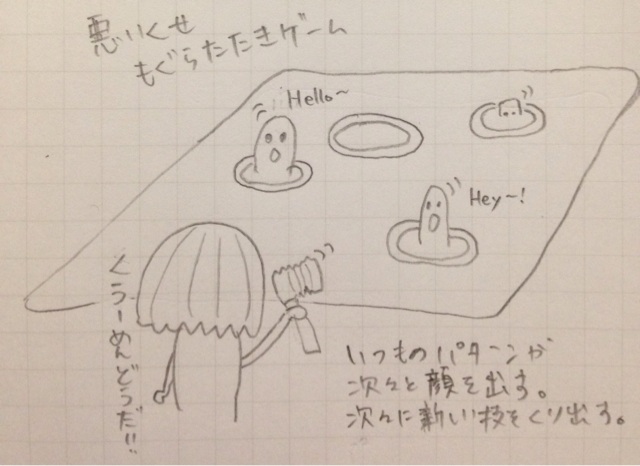 悪いくせ
もぐらたたきゲーム
Hello~
Hey~!
くうーめんどうだ!!
いつものパターンが
次々と顔を出す。
次々に新しい技をくり出す。